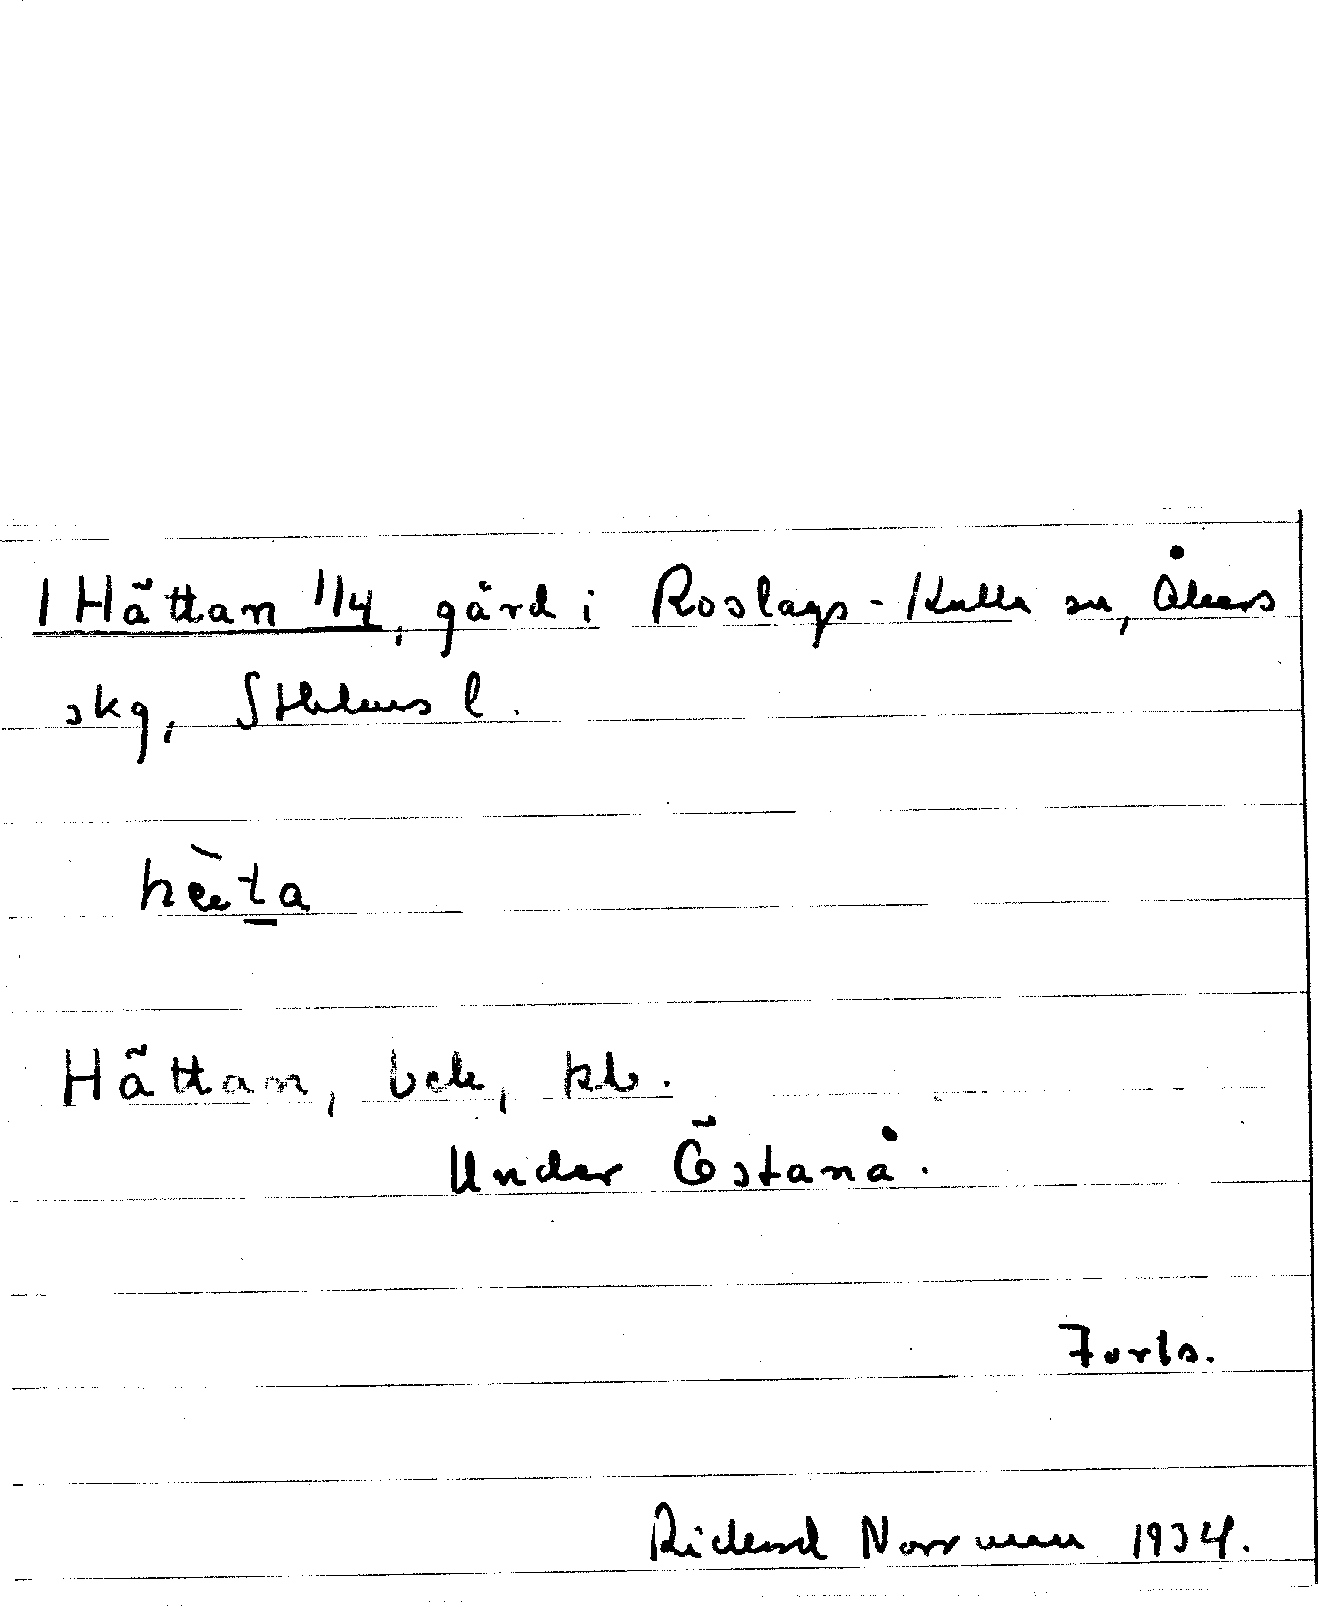 1 Hättan 1/4, gård i Roslags-Kulla sn, Åkers
skg, Sthlms l.
hæ̀ta
Hättan, bek, kb.
Under Östanå.
Forts.
Richard Norrman 1934.